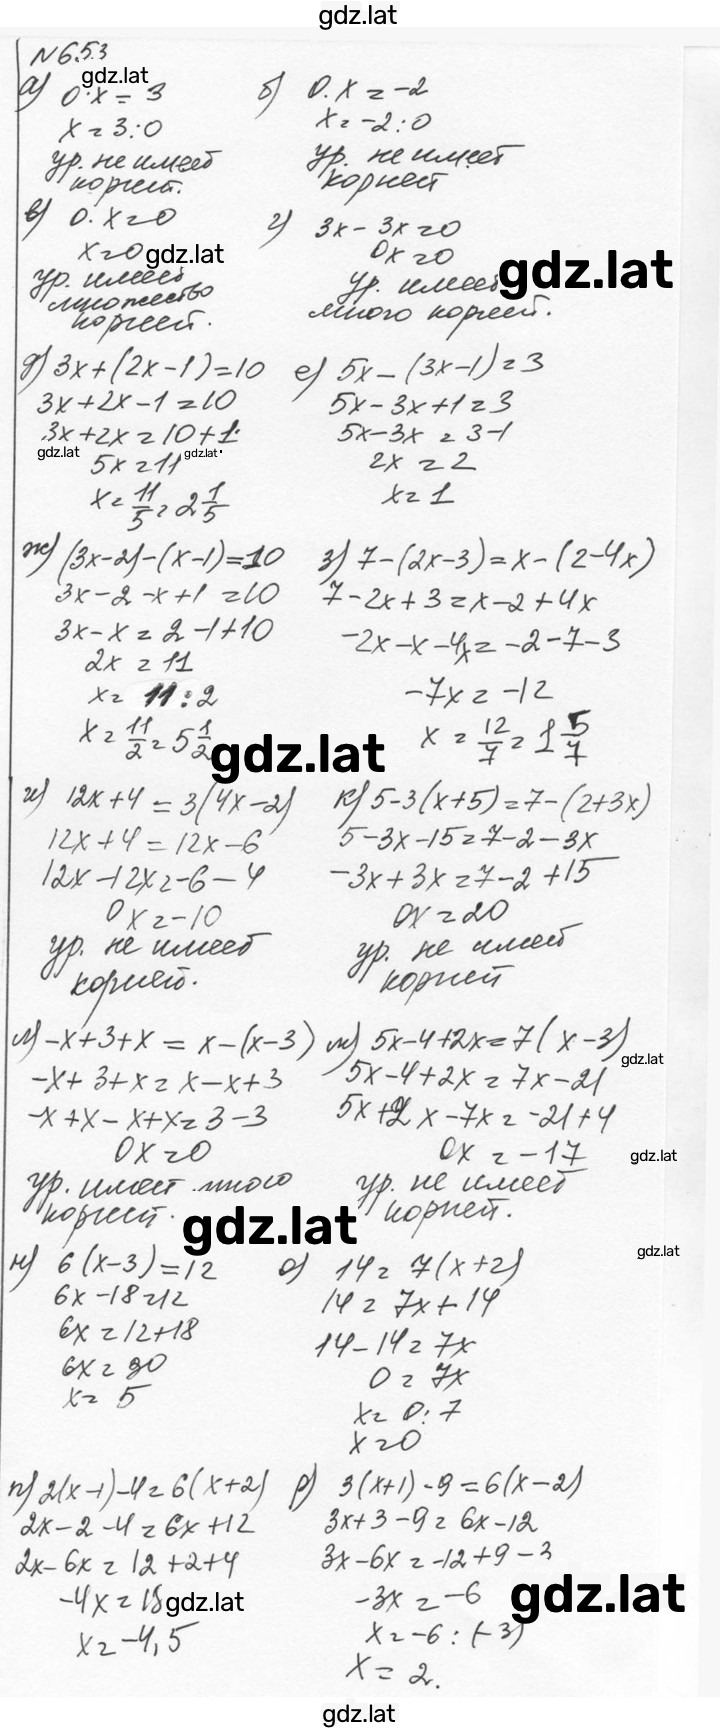 gdz.lat
N 653
gdz.lat
а) 0·x = 3
x = 3:0
ур. не имеет
корней.
б) 0·x = -2
x = -2:0
ур. не имеет
корней
в) 0·x = 0
x = 0
gdz.lat
ур. имеет
множество
корней.
г) 3x - 3x = 0
0x = 0
gdz.lat
ур. имеет
много корней.
д) 3x + (2x - 1) = 10
3x + 2x - 1 = 10
3x + 2x = 10 + 1
gdz.lat
gdz.lat
5x = 11
x = 11/5 = 2 1/5
е) 5x - (3x - 1) = 3
5x - 3x + 1 = 3
5x - 3x = 3 - 1
2x = 2
x = 1
ж) (3x - 2) - (x - 1) = 10
3x - 2 - x + 1 = 10
3x - x = 2 - 1 + 10
2x = 11
x = 11 : 2
x = 11/2 = 5 1/2
gdz.lat
з) 7 - (2x - 3) = x - (2 - 4x)
7 - 2x + 3 = x - 2 + 4x
-2x - x - 4x = -2 - 7 - 3
-7x = -12
x = 12/7 = 1 5/7
и) 12x + 4 = 3(4x - 2)
12x + 4 = 12x - 6
12x - 12x = -6 - 4
0x = -10
ур. не имеет
корней.
к) 5 - 3(x + 5) = 7 - (2 + 3x)
5 - 3x - 15 = 7 - 2 - 3x
-3x + 3x = 7 - 2 + 15
0x = 20
ур. не имеет
корней
л) -x + 3 + x = x - (x - 3)
-x + 3 + x = x - x + 3
-x + x - x + x = 3 - 3
0x = 0
ур. имеет много
корней.
gdz.lat
м) 5x - 4 + 2x = 7(x - 3)
gdz.lat
5x - 4 + 2x = 7x - 21
5x + 2x - 7x = -21 + 4
0x = -17
gdz.lat
ур. не имеет
корней.
gdz.lat
н) 6(x - 3) = 12
6x - 18 = 12
6x = 12 + 18
6x = 30
x = 5
о) 14 = 7(x + 2)
14 = 7x + 14
14 - 14 = 7x
0 = 7x
x = 0 : 7
x = 0
п) 2(x - 1) - 4 = 6(x + 2)
2x - 2 - 4 = 6x + 12
2x - 6x = 12 + 2 + 4
-4x = 18
gdz.lat
x = -4,5
р) 3(x + 1) - 9 = 6(x - 2)
3x + 3 - 9 = 6x - 12
3x - 6x = -12 + 9 - 3
gdz.lat
-3x = -6
x = -6 : (-3)
x = 2.
gdz.lat